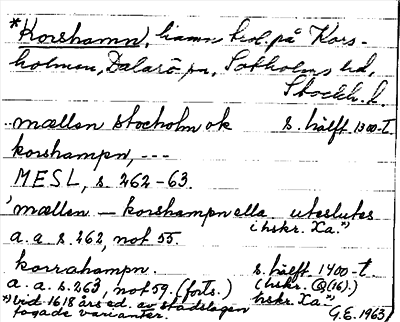 *Korshamn, hamn trol. på Kors-
holmen, Dalarö sn, Sotholms hd,
Stockh. l.
..mællan stocholm ok s. hälft. 1300-t.
korshampn, ---
MESL, s. 262-63.
'mællan — korshampn ella uteslutes
i hskr. Xa.")
a. a. s. 262, not 55.
korrahampn. s. hälft. 1400-t.
a. a. s. 263, not 59. (forts.) (hskr. Q(16).)
")vid 1618 års ed. av stadslagen hskr. Xa.")
fogade varianter. G.E. 1963)